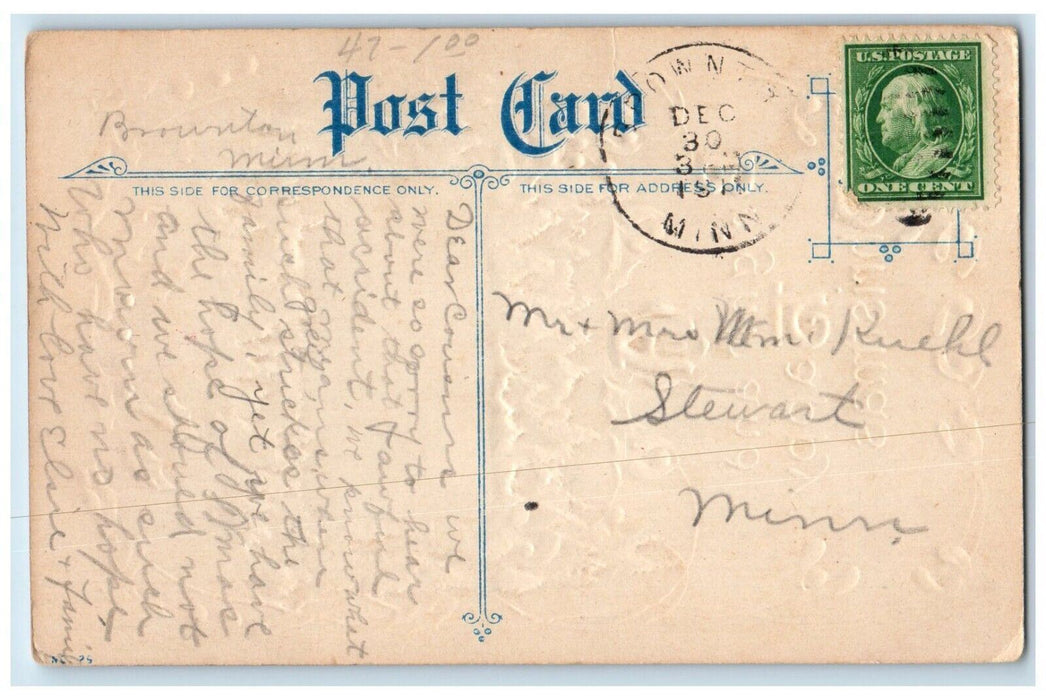 47-100
Post Card
Brownton
Minn
THIS SIDE FOR CORRESPONDENCE ONLY.
THIS SIDE FOR ADDRESS ONLY
DEC
30
MINN
U.S. POSTAGE
ONE CENT
Dear Cousins we
were so sorry to hear
about that fawful
accident, we know what
that means when
such strikes the
family, yet we have
the hope of
and we should not
mourn as such
who have no hope,
With love Elsie + Fami
Mr + Mrs Wm. Kuehl
Stewart
Minn.